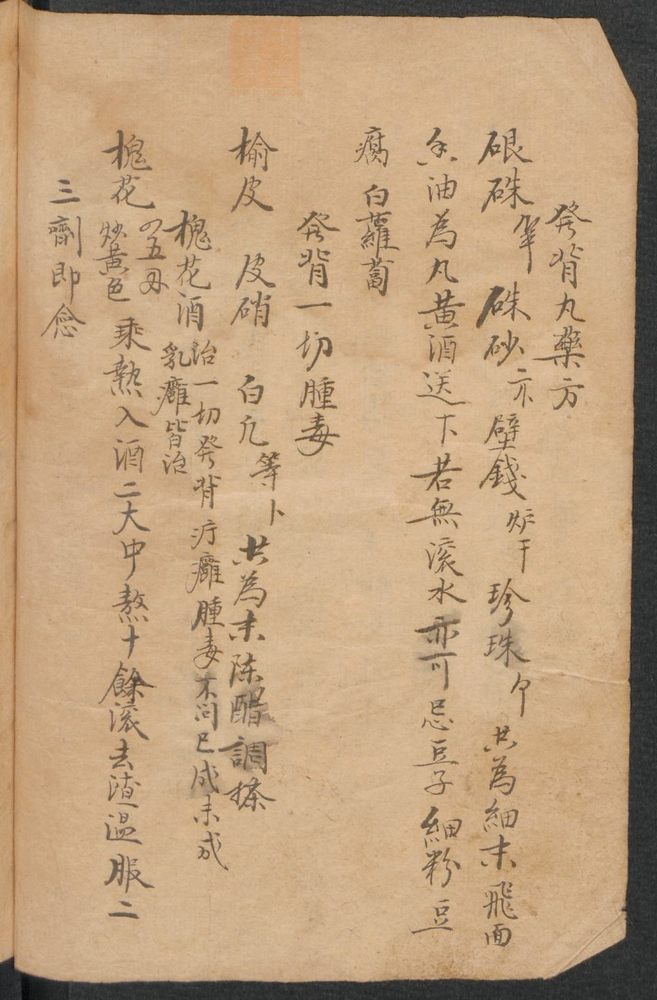 發背丸藥方
硍硃 硃砂 壁錢炉干 珍珠 共為細末飛面
香油為丸黃酒送下若無滚水亦可忌豆子細粉豆
腐白蘿蔔
發背一切腫毒
榆皮 皮硝 白凡等卜共為末陈醋調搽
槐花酒治一切發背疔癰腫毒不问已成未成
乳癰皆治
槐花四五母炒黄色乘熱入酒二大中熬十餘滚去渣温服二
三劑即愈